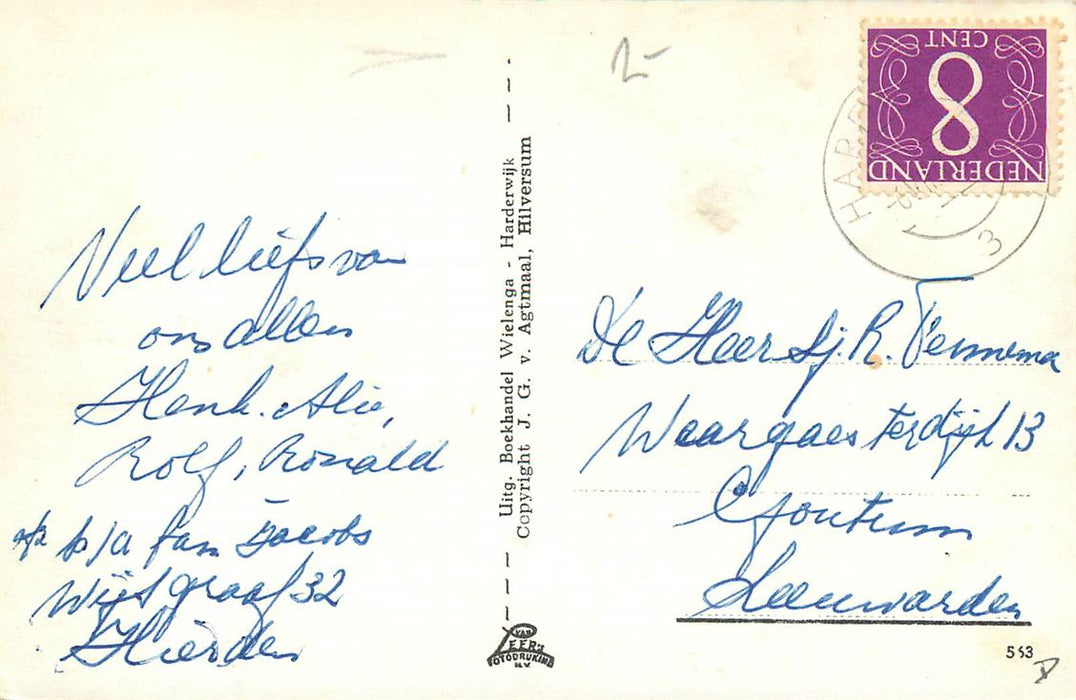 Veel liefs van
ons allen
Henk. Alie,
Rolf, Ronald
p/a fam Jacobs
32
Hierden
Uitg. Boekhandel Wielenga - Harderwijk
Copyright J. G. v. Agtmaal, Hilversum
VAN
LEER'S
FOTODRUKIND
N.V.
CENT
8
NEDERLAND
HARD
3
De Heer Sj. R. Pennema
13
Goutum
Leeuwarden
553